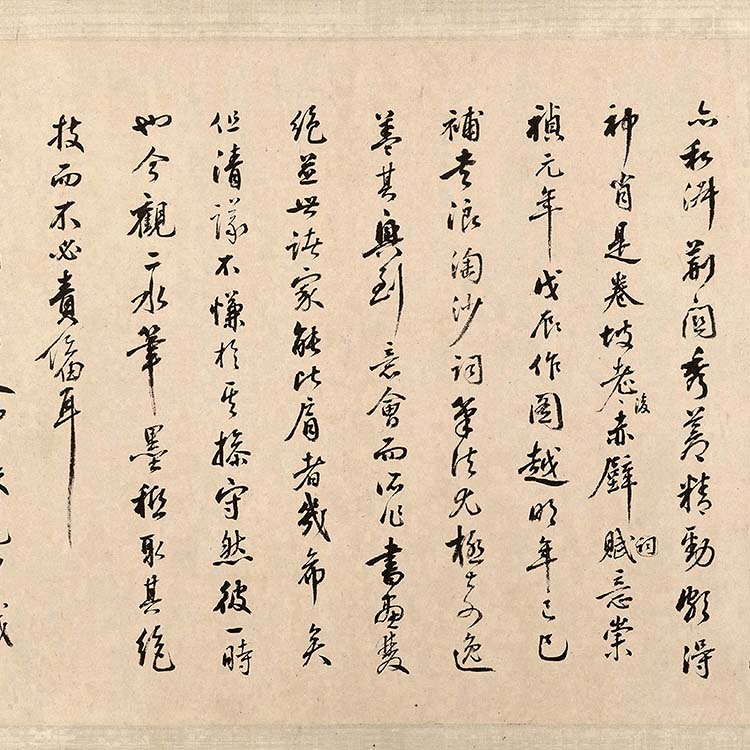 亦私淑荊關秀蒼精勁頗得
神肖是卷坡老後赤壁賦詞意崇
禎元年戊辰作圖越明年己巳
補書浪淘沙詞筆法尤極奇逸
蓋其興到意會而所作書畫雙
絕並世諸家能比肩者幾希矣
但清議不慊於其操守然彼一時
也今觀二水筆墨秪取其絕
技而不必責備耳